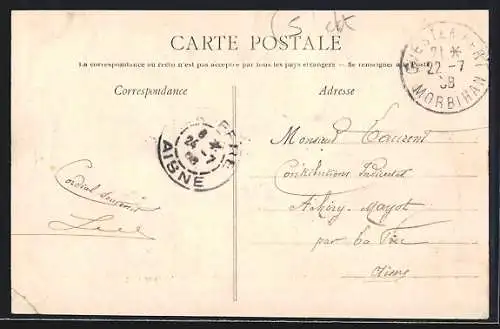 CARTE POSTALE
La correspondance au recto n'est pas acceptée par tous les pays étrangers. — Se renseigner à la Poste
Correspondance
Adresse
21 *
22 - 7
08
MORBIHAN
FERE
6 *
24 - 7
08
AISNE
Monsieur Laurent
Contributions Indirectes
Achéry - Mayot
par La Fère
Aisne
Cordial Souvenir